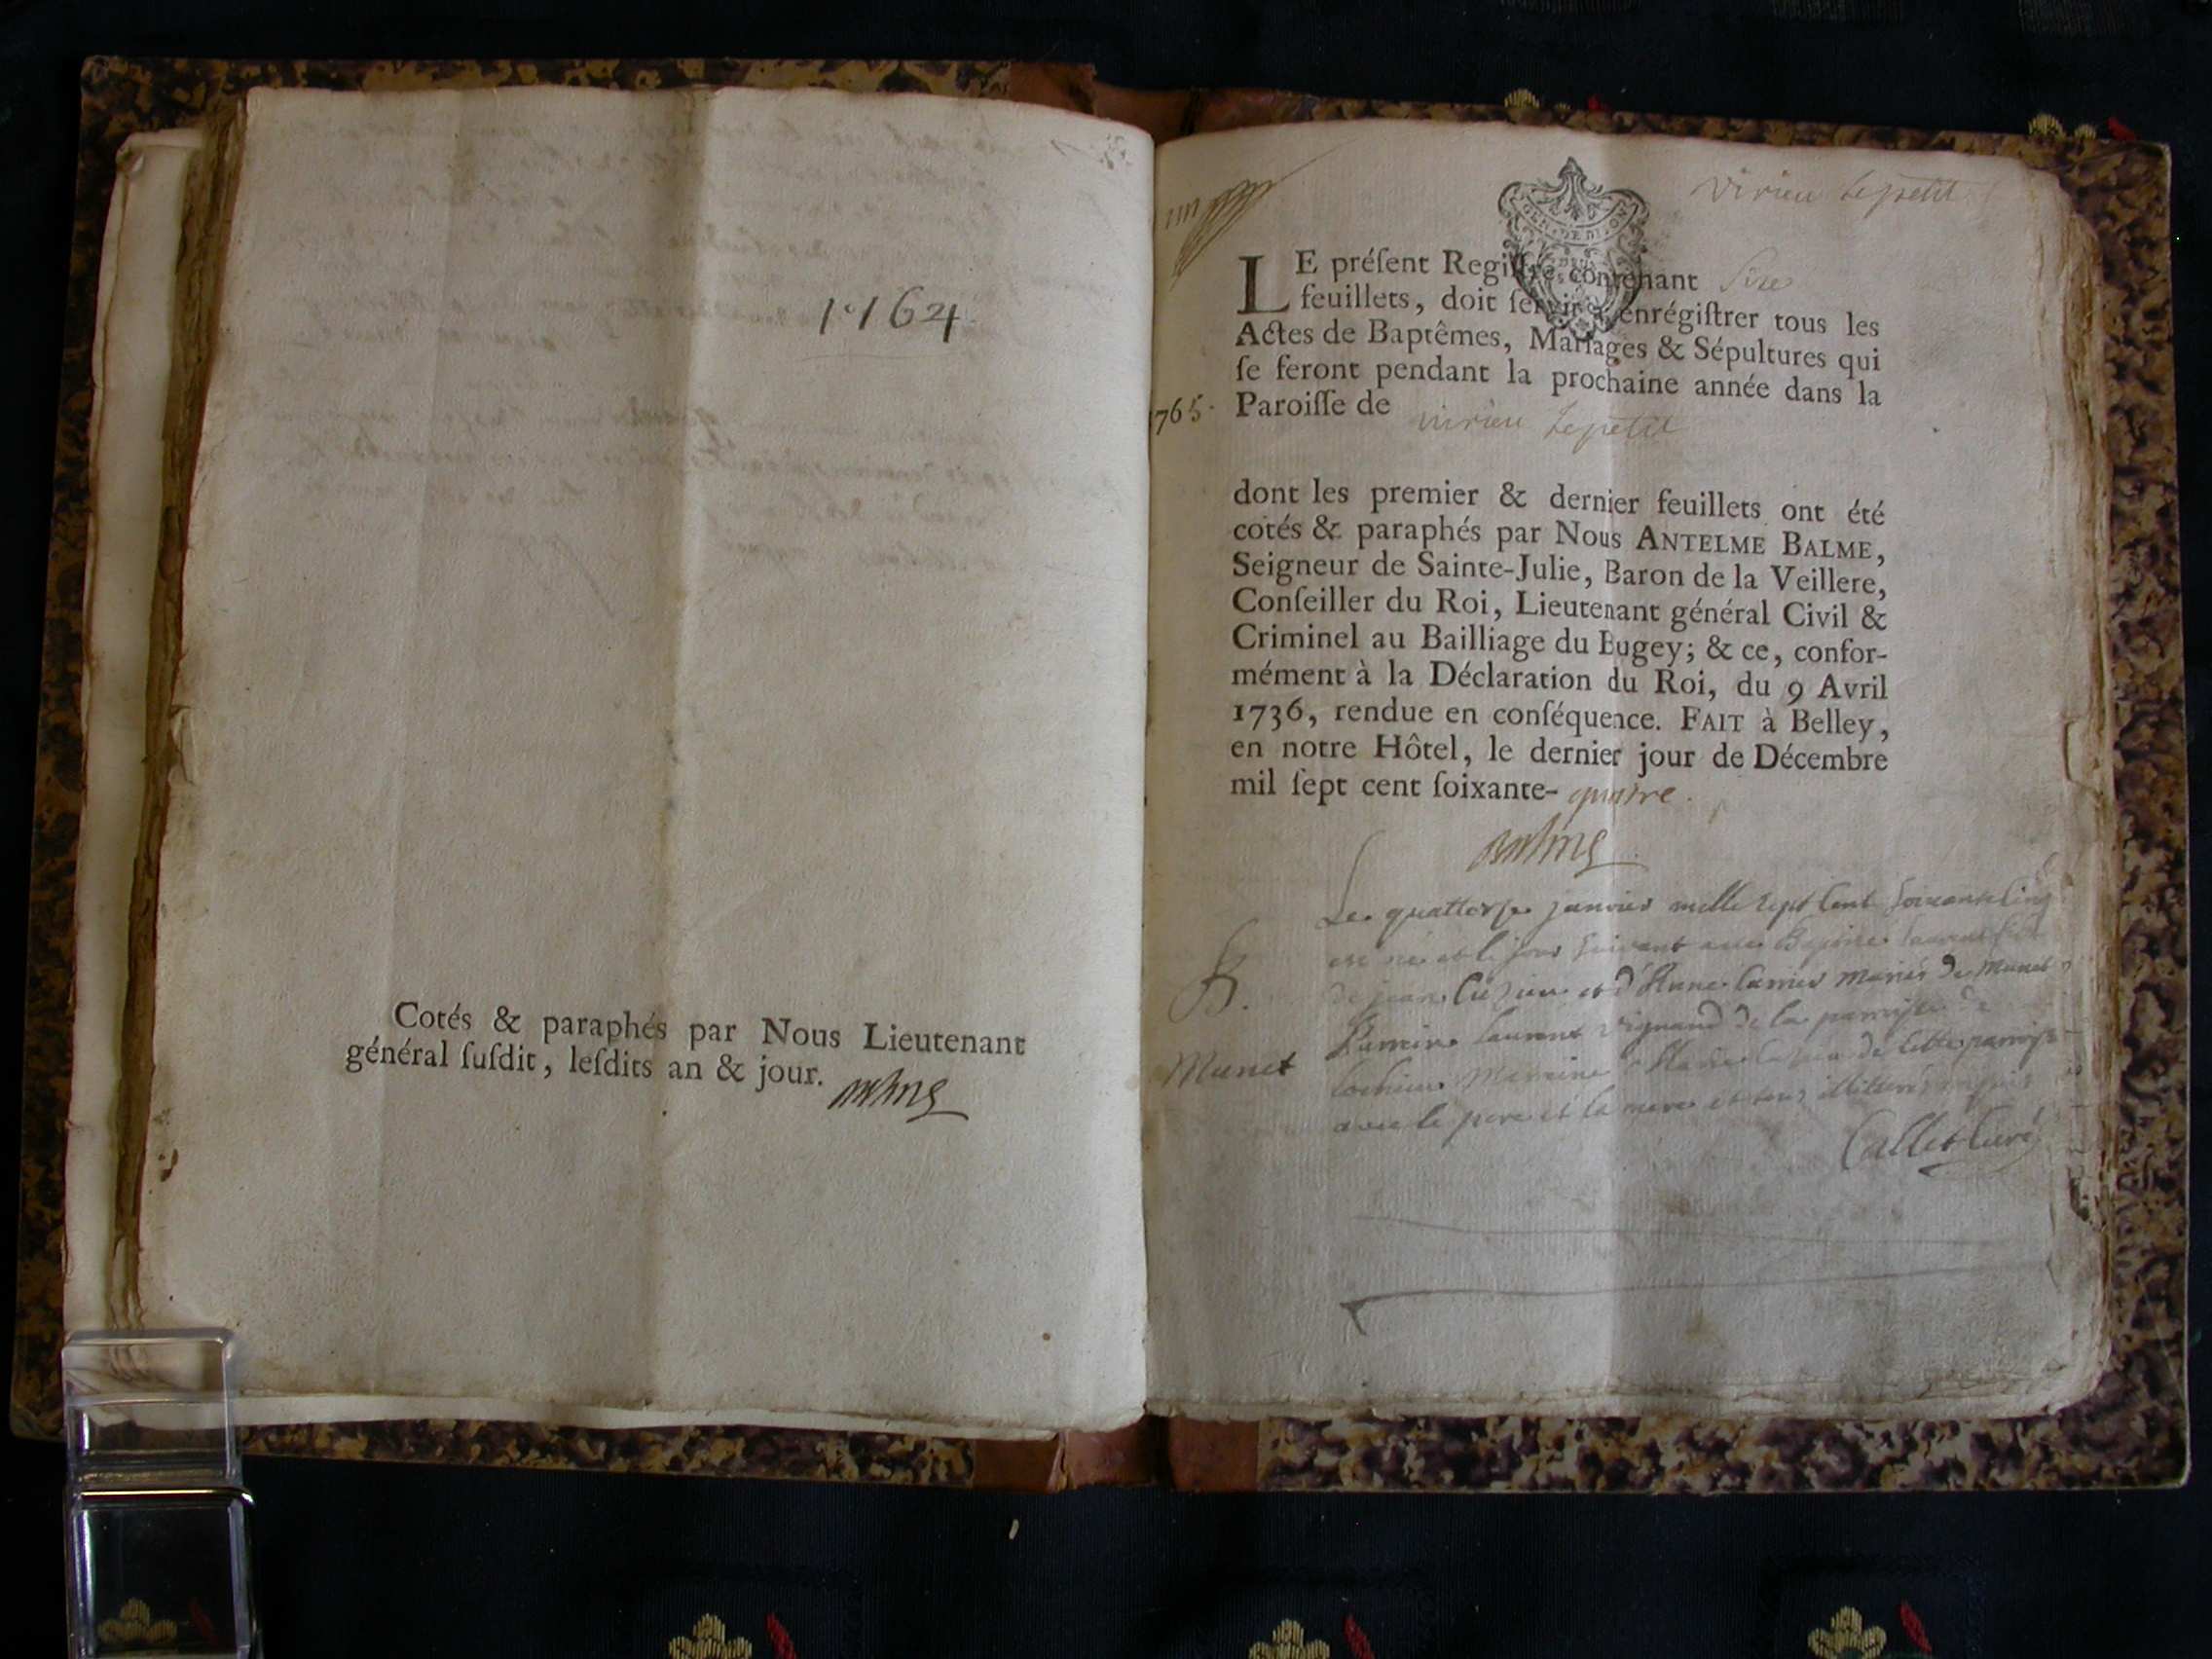 1764
Cotés & paraphés par Nous Lieutenant
général ſuſdit, leſdits an & jour. Balme
virieu Lepetit
GEN. DE DIJON
LE préſent Regiſtre contenant
feuillets, doit ſervir à enrégiſtrer tous les
Actes de Baptêmes, Mariages & Sépultures qui
ſe feront pendant la prochaine année dans la
1765. Paroiſſe de virieu Lepetit
dont les premier & dernier feuillets ont été
cotés & paraphés par Nous ANTELME BALME,
Seigneur de Sainte-Julie, Baron de la Veillere,
Conſeiller du Roi, Lieutenant général Civil &
Criminel au Bailliage du Bugey; & ce, confor-
mément à la Déclaration du Roi, du 9 Avril
1736, rendue en conſéquence. FAIT à Belley,
en notre Hôtel, le dernier jour de Décembre
mil ſept cent ſoixante- quatre.
Balme
Le quattorse janvier mille sept cent soixante cinq
est né et le jour suivant a été Baptisé laurent
B. de jean et d'Anne mariés de Munet
Parrain laurent vignand de la parroisse de
Munet lochieu Marraine de cette parroisse
avec le pere et la mere et tous illitterés
Callet Curé